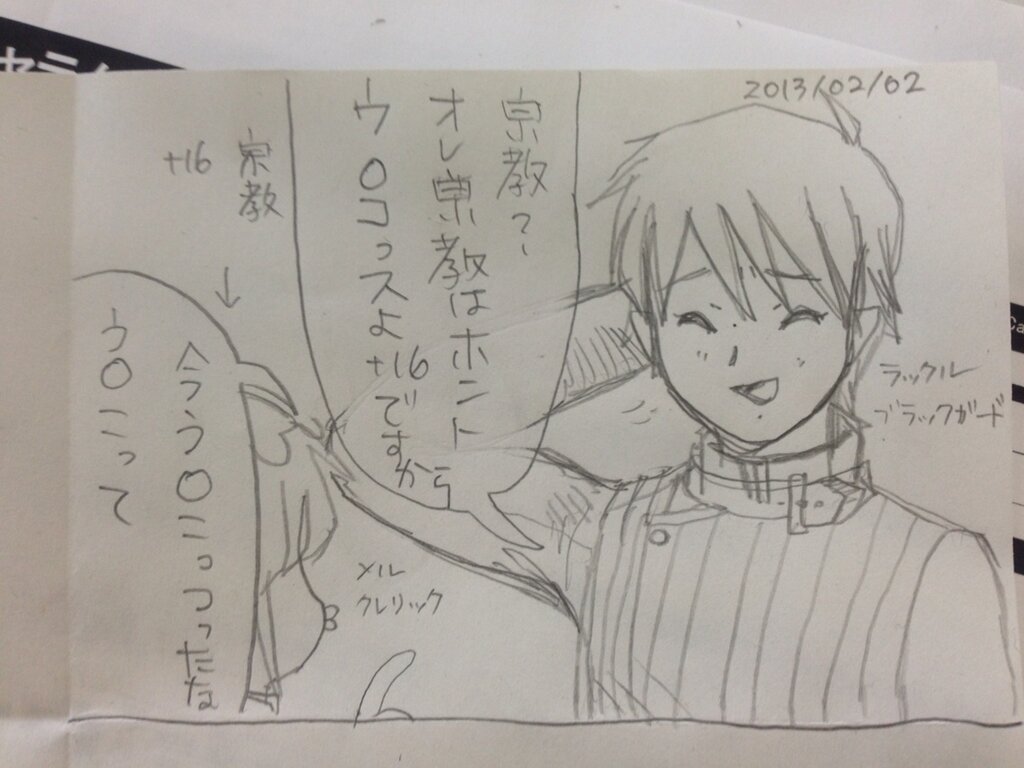 2013/02/02
宗教?
オレ宗教はホント
ウ〇コっスよ+16ですから
ラックル
ブラックガード
宗教
+16
↓
今う〇こっつったな
ウ〇こって
メル
クレリック